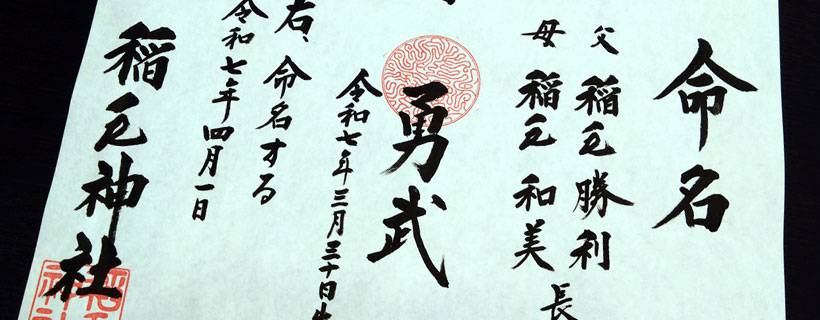 命名
父 稲毛勝利
母 稲毛和美
長
勇武
令和七年三月三十日生
右、命名する
令和七年四月一日
稲毛神社